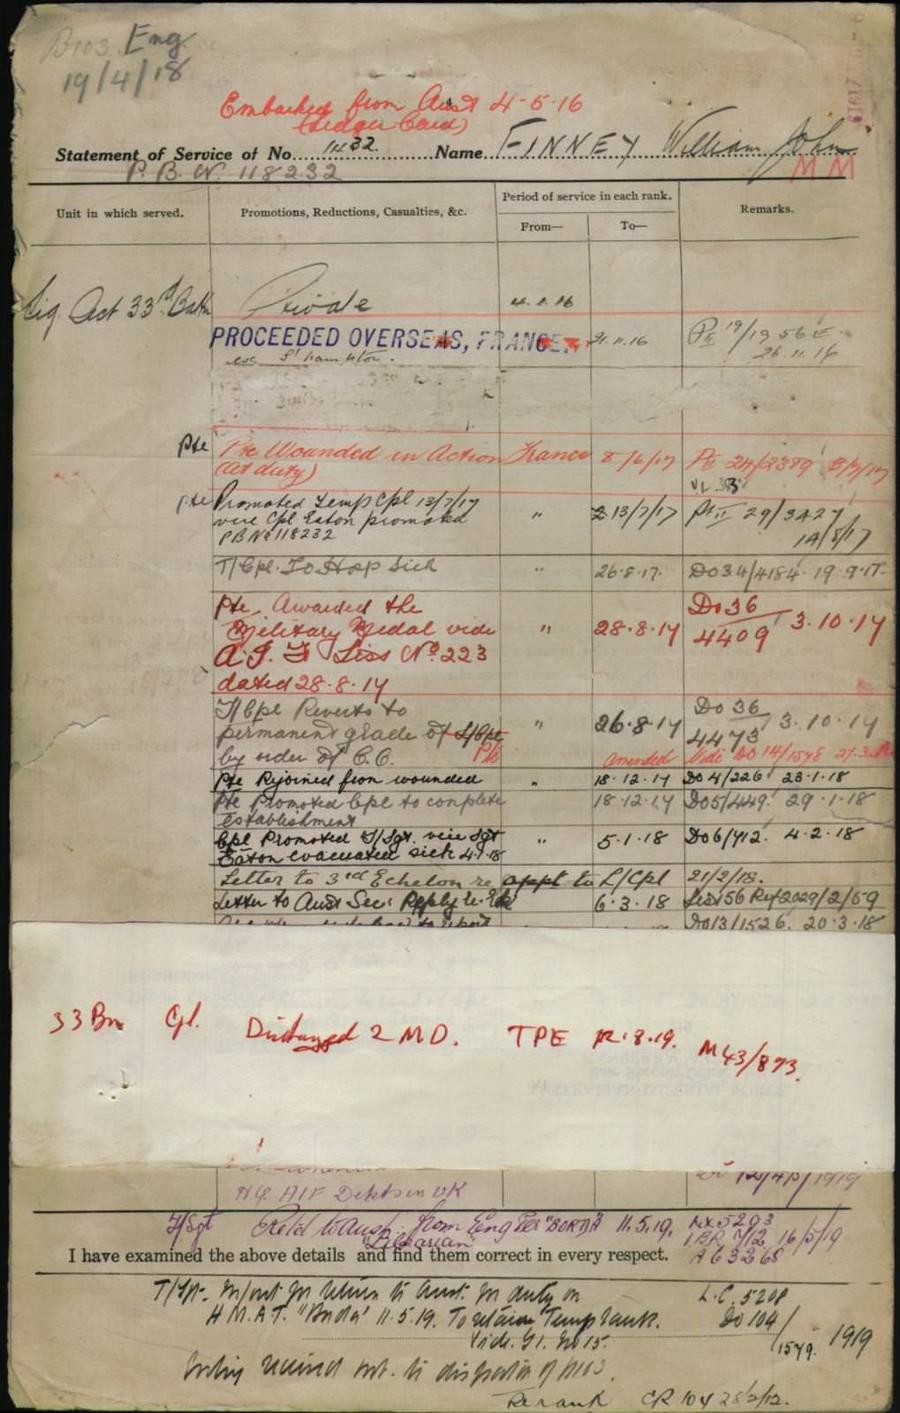 Eng
19/4/18
Embarked from Aust 4-5-16
(Ledger Card)
Statement of Service of No. 1132 Name FINNEY William John
P. B. No. 118232 MM
Unit in which served. Promotions, Reductions, Casualties, &c. Period of service in each rank. Remarks.
From— To—
Sig. Act 33rd Batn Private 4.1.16
PROCEEDED OVERSEAS, FRANCE. 21.11.16 Pt II 19/19 56
S'hampton. 26.11.16
Pte Pte Wounded in Action France 8/6/17 Pt II 24/2389
(at duty)
pte Promoted Temp Cpl 13/7/17 " 13/7/17 Pt II 29/3427
vice Cpl Eaton promoted 14/8/17
PB No 118232
T/Cpl. To Hosp Sick " 26.8.17. Do34/4184. 19.9.17.
Pte. Awarded the Do 36
Military Medal vide " 28.8.17 4409 3.10.17
A.I.F List No. 223
dated 28.8.17
T/Cpl Reverts to Do 36
permanent grade of L/Cpl " 26.8.17 4473 3.10.17
by order of C.O. Pte amended Vide DO 14/1578
Pte Rejoined from wounded " 18.12.17 Do 4/226 23.1.18
Pte Promoted Cpl to complete 18.12.17 Do5/449. 29.1.18
establishment
Cpl Promoted T/Sgt. vice Sgt " 5.1.18 Do6/712. 4.2.18
Eaton evacuated sick 4.1.18
Letter to 3rd Echelon re appt to L/Cpl 21/2/18.
Letter to Aust Sec: Reply 6.3.18 List 56 Ref 2029/2/59
Do13/1526. 20.3.18
33 Bn Cpl. Discharged 2 MD. TPE 12.8.19. M43/873.
HQ AIF Depots in UK
T/Sgt Retd to Aust. from Eng per "BORDA" 11.5.19. 16/5/19
"Librarian" A63268
I have examined the above details and find them correct in every respect.
T/Sgt. m/out for return to Aust. for duty on L.C. 5208
H.M.A.T. "Borda" 11.5.19. To retain Temp rank. Do 104/
Vide. G.I. No 15. 1579. 1919